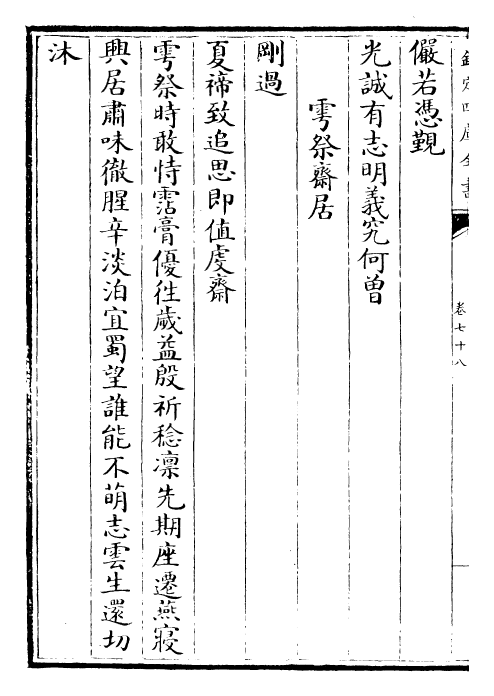 欽定四庫全書
卷七十八
儼若憑覲
光誠有志明義究何曾
雩祭齋居
剛過
夏禘致追思即值虔齋
雩祭時敢恃霑膏優徃歲益殷祈稔凛先期座遷燕寢
興居肅味徹腥辛淡泊宜蜀望誰能不萌志雲生還切
沐